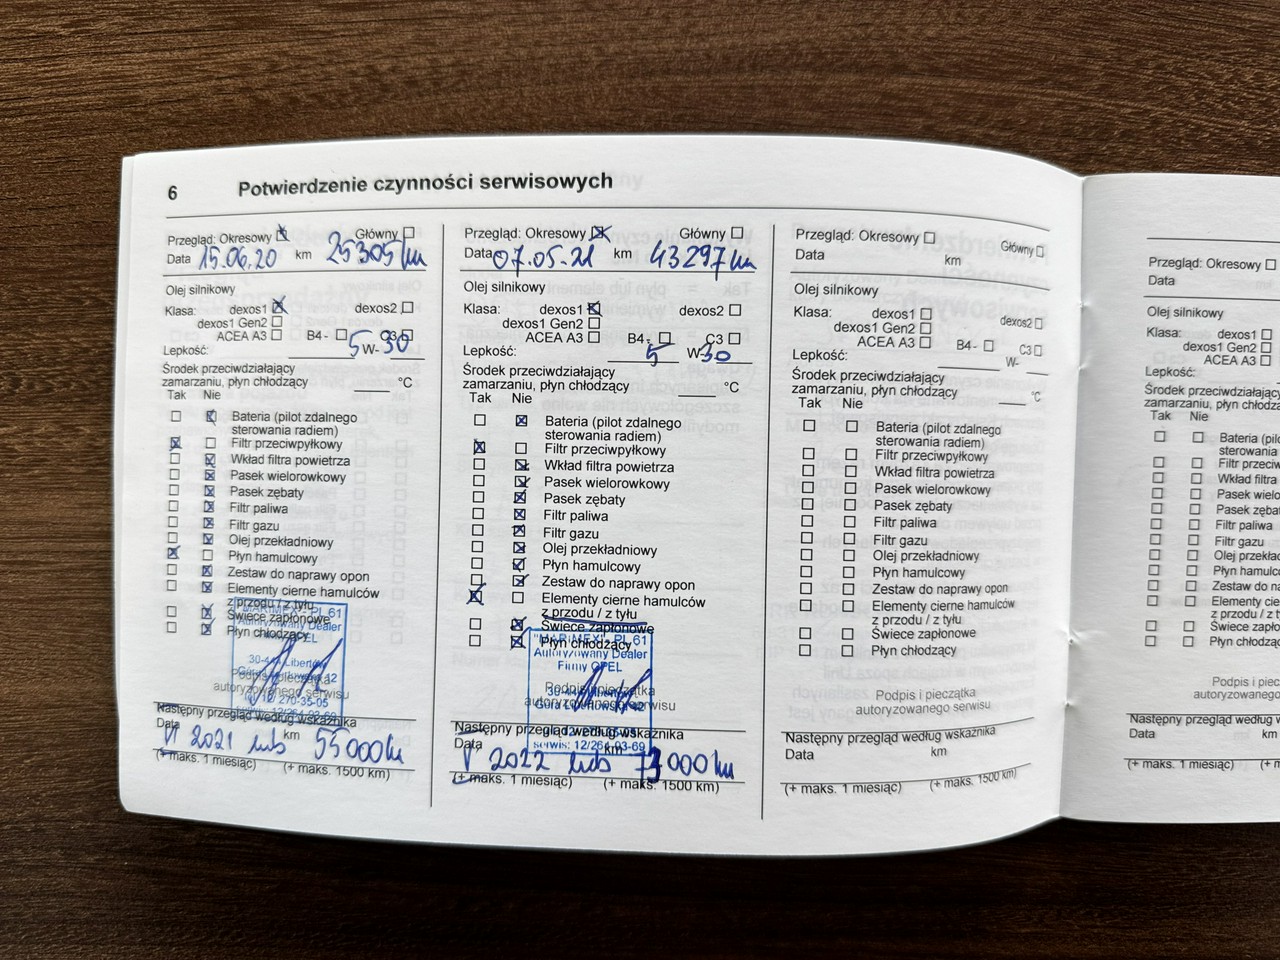 6 Potwierdzenie czynności serwisowych
Przegląd: Okresowy Główny
Data 15.06.20 km 25305 km
Olej silnikowy
Klasa: dexos1 dexos2
dexos1 Gen2
ACEA A3 B4 - C3
Lepkość: 5 W- 30
Środek przeciwdziałający
zamarzaniu, płyn chłodzący °C
Tak Nie
Bateria (pilot zdalnego
sterowania radiem)
Filtr przeciwpyłkowy
Wkład filtra powietrza
Pasek wielorowkowy
Pasek zębaty
Filtr paliwa
Filtr gazu
Olej przekładniowy
Płyn hamulcowy
Zestaw do naprawy opon
Elementy cierne hamulców
z przodu / z tyłu
Świece zapłonowe
Płyn chłodzący
"MARIMEX" PL 61
Autoryzowany Dealer
OPEL
Podpis i pieczątka
autoryzowanego serwisu
Następny przegląd według wskaźnika
Data km
VI 2021 lub 55000 km
(+ maks. 1 miesiąc) (+ maks. 1500 km)
Przegląd: Okresowy Główny
Data 07.05.21 km 43297 km
Olej silnikowy
Klasa: dexos1 dexos2
dexos1 Gen2
ACEA A3 B4 - C3
Lepkość: 5 W- 30
Środek przeciwdziałający
zamarzaniu, płyn chłodzący °C
Tak Nie
Bateria (pilot zdalnego
sterowania radiem)
Filtr przeciwpyłkowy
Wkład filtra powietrza
Pasek wielorowkowy
Pasek zębaty
Filtr paliwa
Filtr gazu
Olej przekładniowy
Płyn hamulcowy
Zestaw do naprawy opon
Elementy cierne hamulców
z przodu / z tyłu
Świece zapłonowe
Płyn chłodzący
"MARIMEX" PL 61
Autoryzowany Dealer
Firmy OPEL
Podpis i pieczątka
autoryzowanego serwisu
Następny przegląd według wskaźnika
Data km
V 2022 lub 73000 km
(+ maks. 1 miesiąc) (+ maks. 1500 km)
Przegląd: Okresowy Główny
Data km
Olej silnikowy
Klasa: dexos1 dexos2
dexos1 Gen2
ACEA A3 B4 - C3
Lepkość: W-
Środek przeciwdziałający
zamarzaniu, płyn chłodzący °C
Tak Nie
Bateria (pilot zdalnego
sterowania radiem)
Filtr przeciwpyłkowy
Wkład filtra powietrza
Pasek wielorowkowy
Pasek zębaty
Filtr paliwa
Filtr gazu
Olej przekładniowy
Płyn hamulcowy
Zestaw do naprawy opon
Elementy cierne hamulców
z przodu / z tyłu
Świece zapłonowe
Płyn chłodzący
Podpis i pieczątka
autoryzowanego serwisu
Następny przegląd według wskaźnika
Data km
(+ maks. 1 miesiąc) (+ maks. 1500 km)
Przegląd: Okresowy
Data
Olej silnikowy
Klasa: dexos1
dexos1 Gen2
ACEA A3
Lepkość:
Środek przeciwdziałający
zamarzaniu, płyn chłodzą
Tak Nie
Bateria (pilo
sterowania
Filtr przeciw
Wkład filtra
Pasek wielo
Pasek zęba
Filtr paliwa
Filtr gazu
Olej przekła
Płyn hamulc
Zestaw do na
Elementy cie
z przodu / z t
Świece zapło
Płyn chłodzą
Podpis i p
autoryzowaneg
Następny przegląd według w
Data km
(+ maks. 1 miesiąc) (+ m